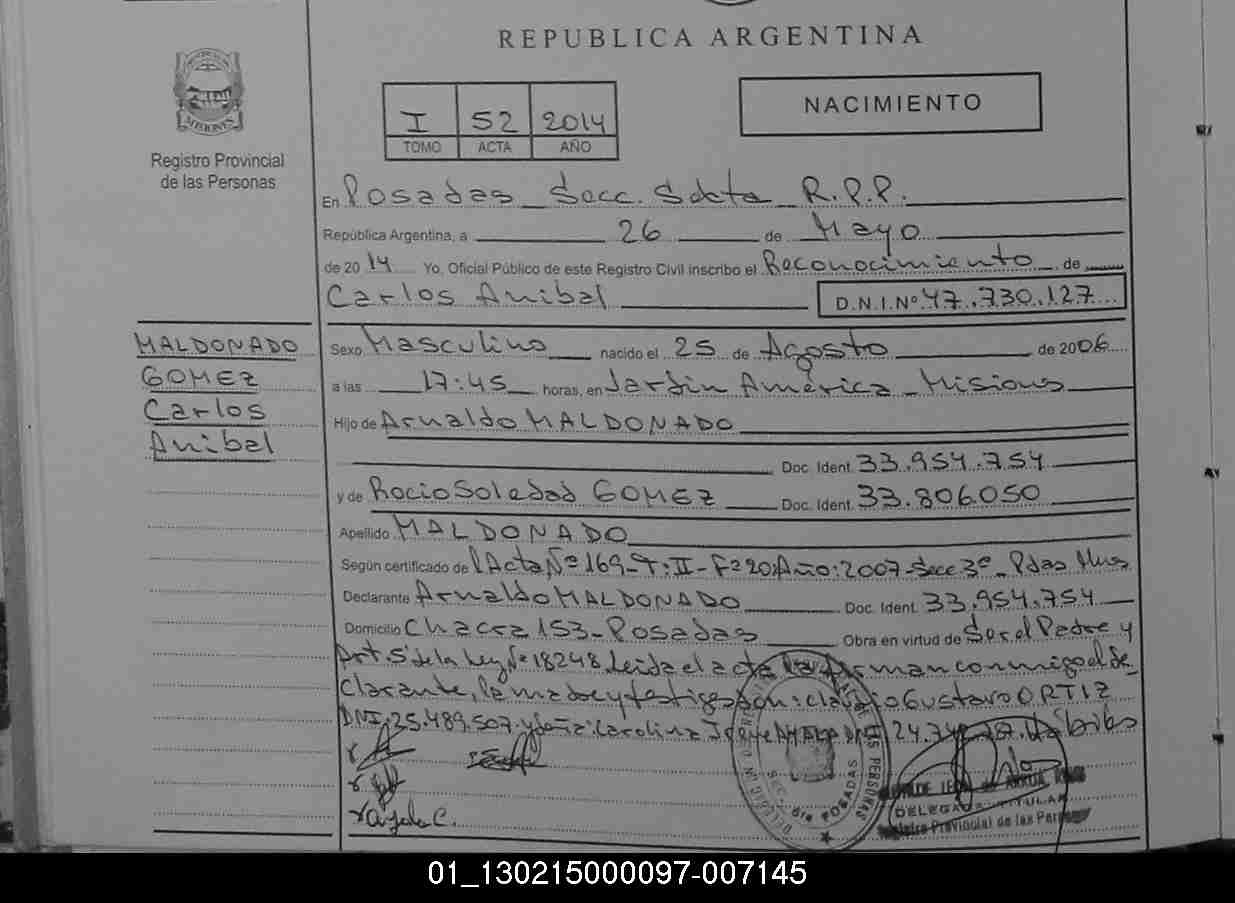 REPUBLICA ARGENTINA
MISIONES
Registro Provincial
de las Personas
I 52 2014
TOMO ACTA AÑO
NACIMIENTO
En Posadas Secc. Sexta R.P.P.
República Argentina, a 26 de Mayo
de 2014 Yo, Oficial Público de este Registro Civil inscribo el Reconocimiento de
Carlos Anibal D.N.I.Nº 47.730.127
MALDONADO
GOMEZ
Carlos
Anibal
Sexo Masculino nacido el 25 de Agosto de 2006
a las 17:45 horas, en Jardin América Misiones
Hijo de Arnaldo MALDONADO
Doc. Ident. 33.954.754
y de Rocio Soledad GOMEZ Doc. Ident. 33.806.050
Apellido MALDONADO
Según certificado de Acta Nº 169-T:II-Fº20:Año:2007-Secc 3º Pdas Mnes
Declarante Arnaldo MALDONADO Doc. Ident. 33.954.754
Domicilio Chacra 153-Posadas Obra en virtud de Ser el Padre y
Art. 5 de la Ley Nº 18248. Leida el acta la firman conmigo el de-
clarante, la madre y testigos son: Claudio Gustavo ORTIZ
DNI. 25.489.507. y doña: Carolina AYALA DNI 24.
Ayala C.
DELEGADA TITULAR
Registro Provincial de las Personas
POSADAS
01_130215000097-007145